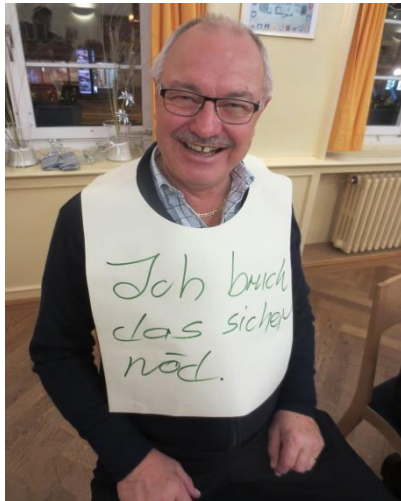 Ich bruch
das sicher
nöd.